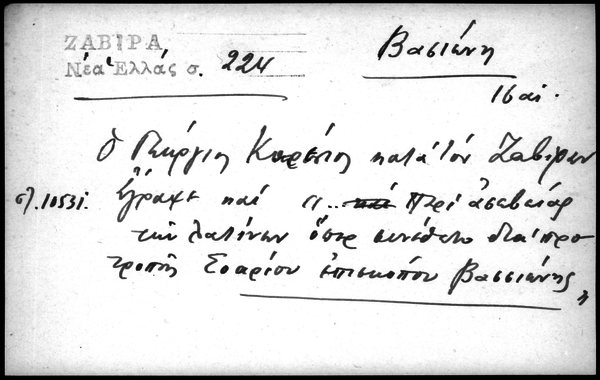 ΖΑΒΙΡΑ
Νέα Ἑλλάς σ. 224
Βασιάνη
16 αι.
ὁ Γεώργιος Κορέσιος κατά τόν Ζαβίραν
ἔγραψε καί "... περί ἀσεβείας
τῶν λατίνων ὅπερ συνέθετο διά προ
τροπῆς Σεαρίου ἐπισκόπου Βασσιάνης"